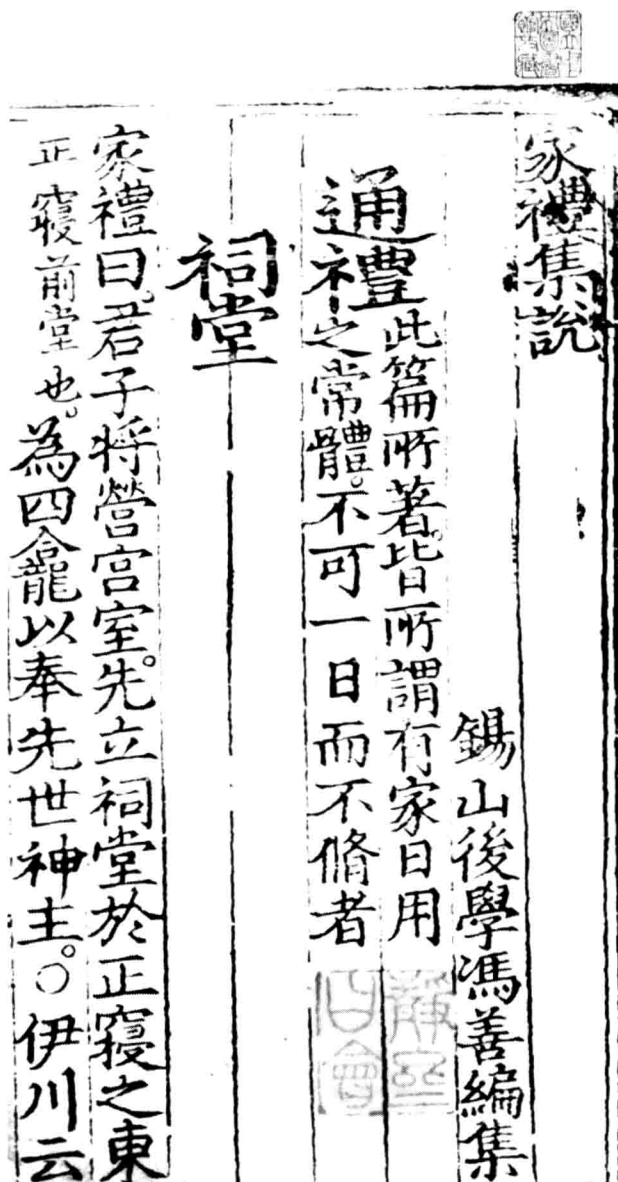 家禮集說
錫山後學馮善編集
通禮此篇所著皆所謂有家日用
之常體。不可一日而不脩者
祠堂
家禮曰。君子将營宫室。先立祠堂於正寢之東
正寢前堂也。為四龕以奉先世神主。○伊川云